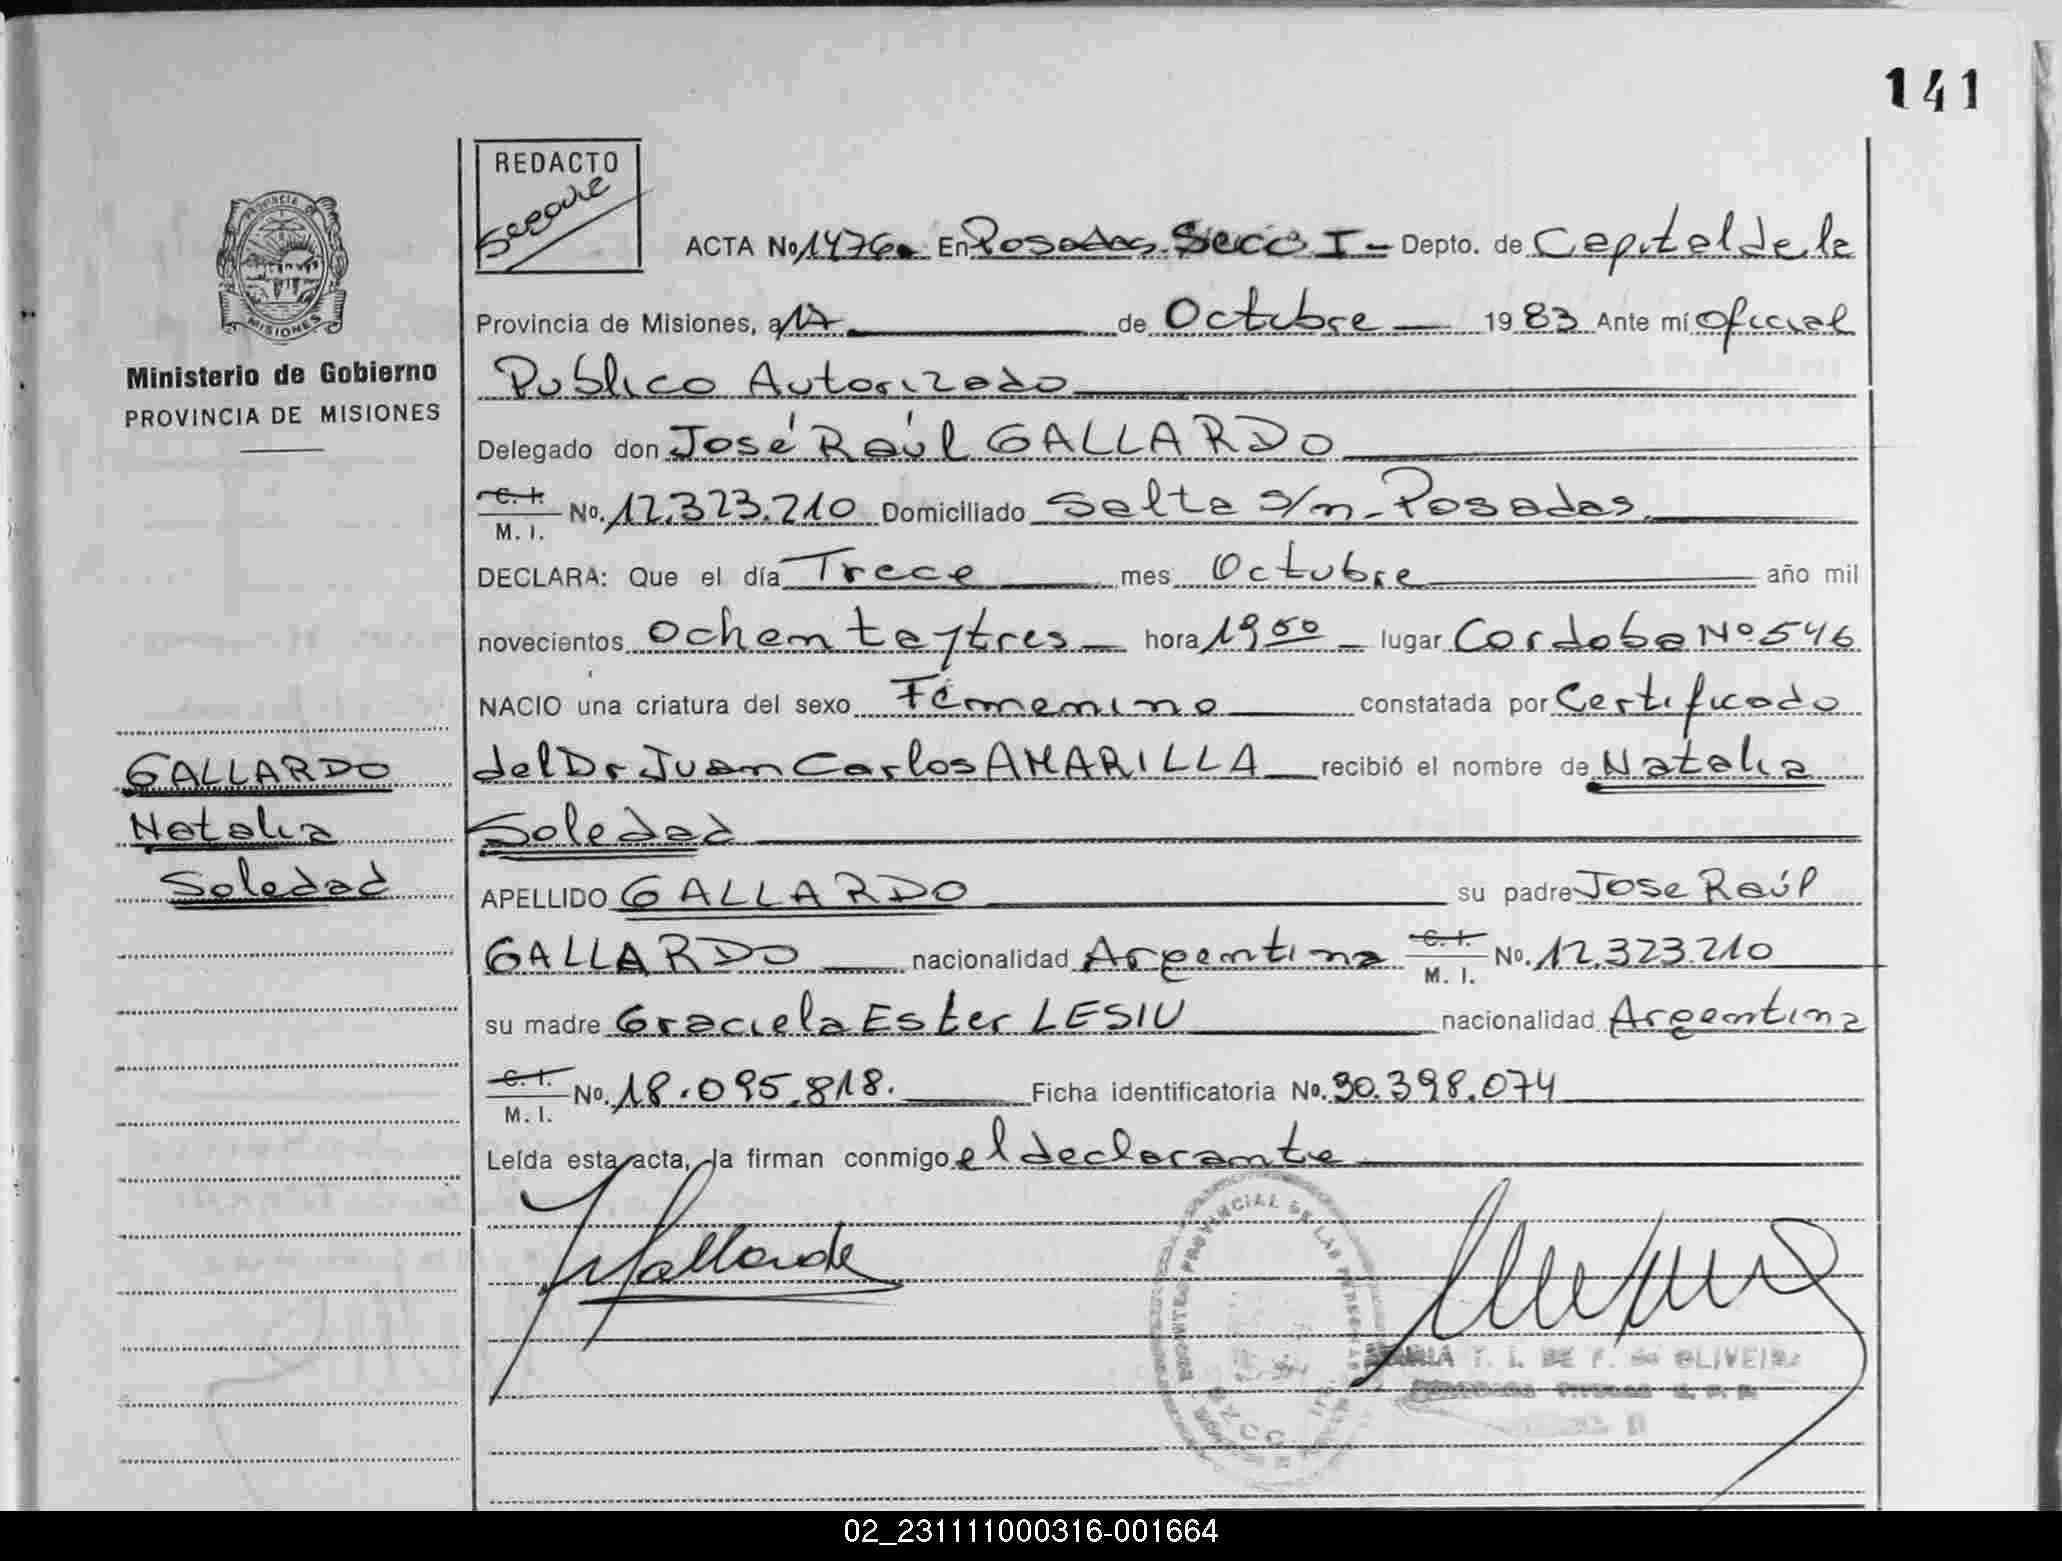 141
REDACTO
PROVINCIA DE
MISIONES
ACTA No 1476. En Posadas. Secc I - Depto. de Capital de la
Provincia de Misiones, a 17 de Octubre 1983 Ante mí Oficial
Ministerio de Gobierno
PROVINCIA DE MISIONES
Publico Autorizado
Delegado don José Raúl GALLARDO
C. I.
M. I. No. 12.323.210 Domiciliado Salta s/n - Posadas
DECLARA: Que el día Trece mes Octubre año mil
novecientos ochenta y tres hora 19 50 lugar Cordoba No 546
NACIO una criatura del sexo Femenino constatada por Certificado
del Dr Juan Carlos AMARILLA recibió el nombre de Natalia
Soledad
GALLARDO
Natalia
Soledad
APELLIDO GALLARDO su padre Jose Raúl
GALLARDO nacionalidad Argentina C. I. M. I. No. 12.323.210
su madre Graciela Ester LESIU nacionalidad Argentina
C. I.
M. I. No. 18.095.818. Ficha identificatoria No. 30.398.074
Leída esta acta, la firman conmigo el declarante
Gallardo
PROVINCIAL DE LAS PERSONAS
02_231111000316-001664